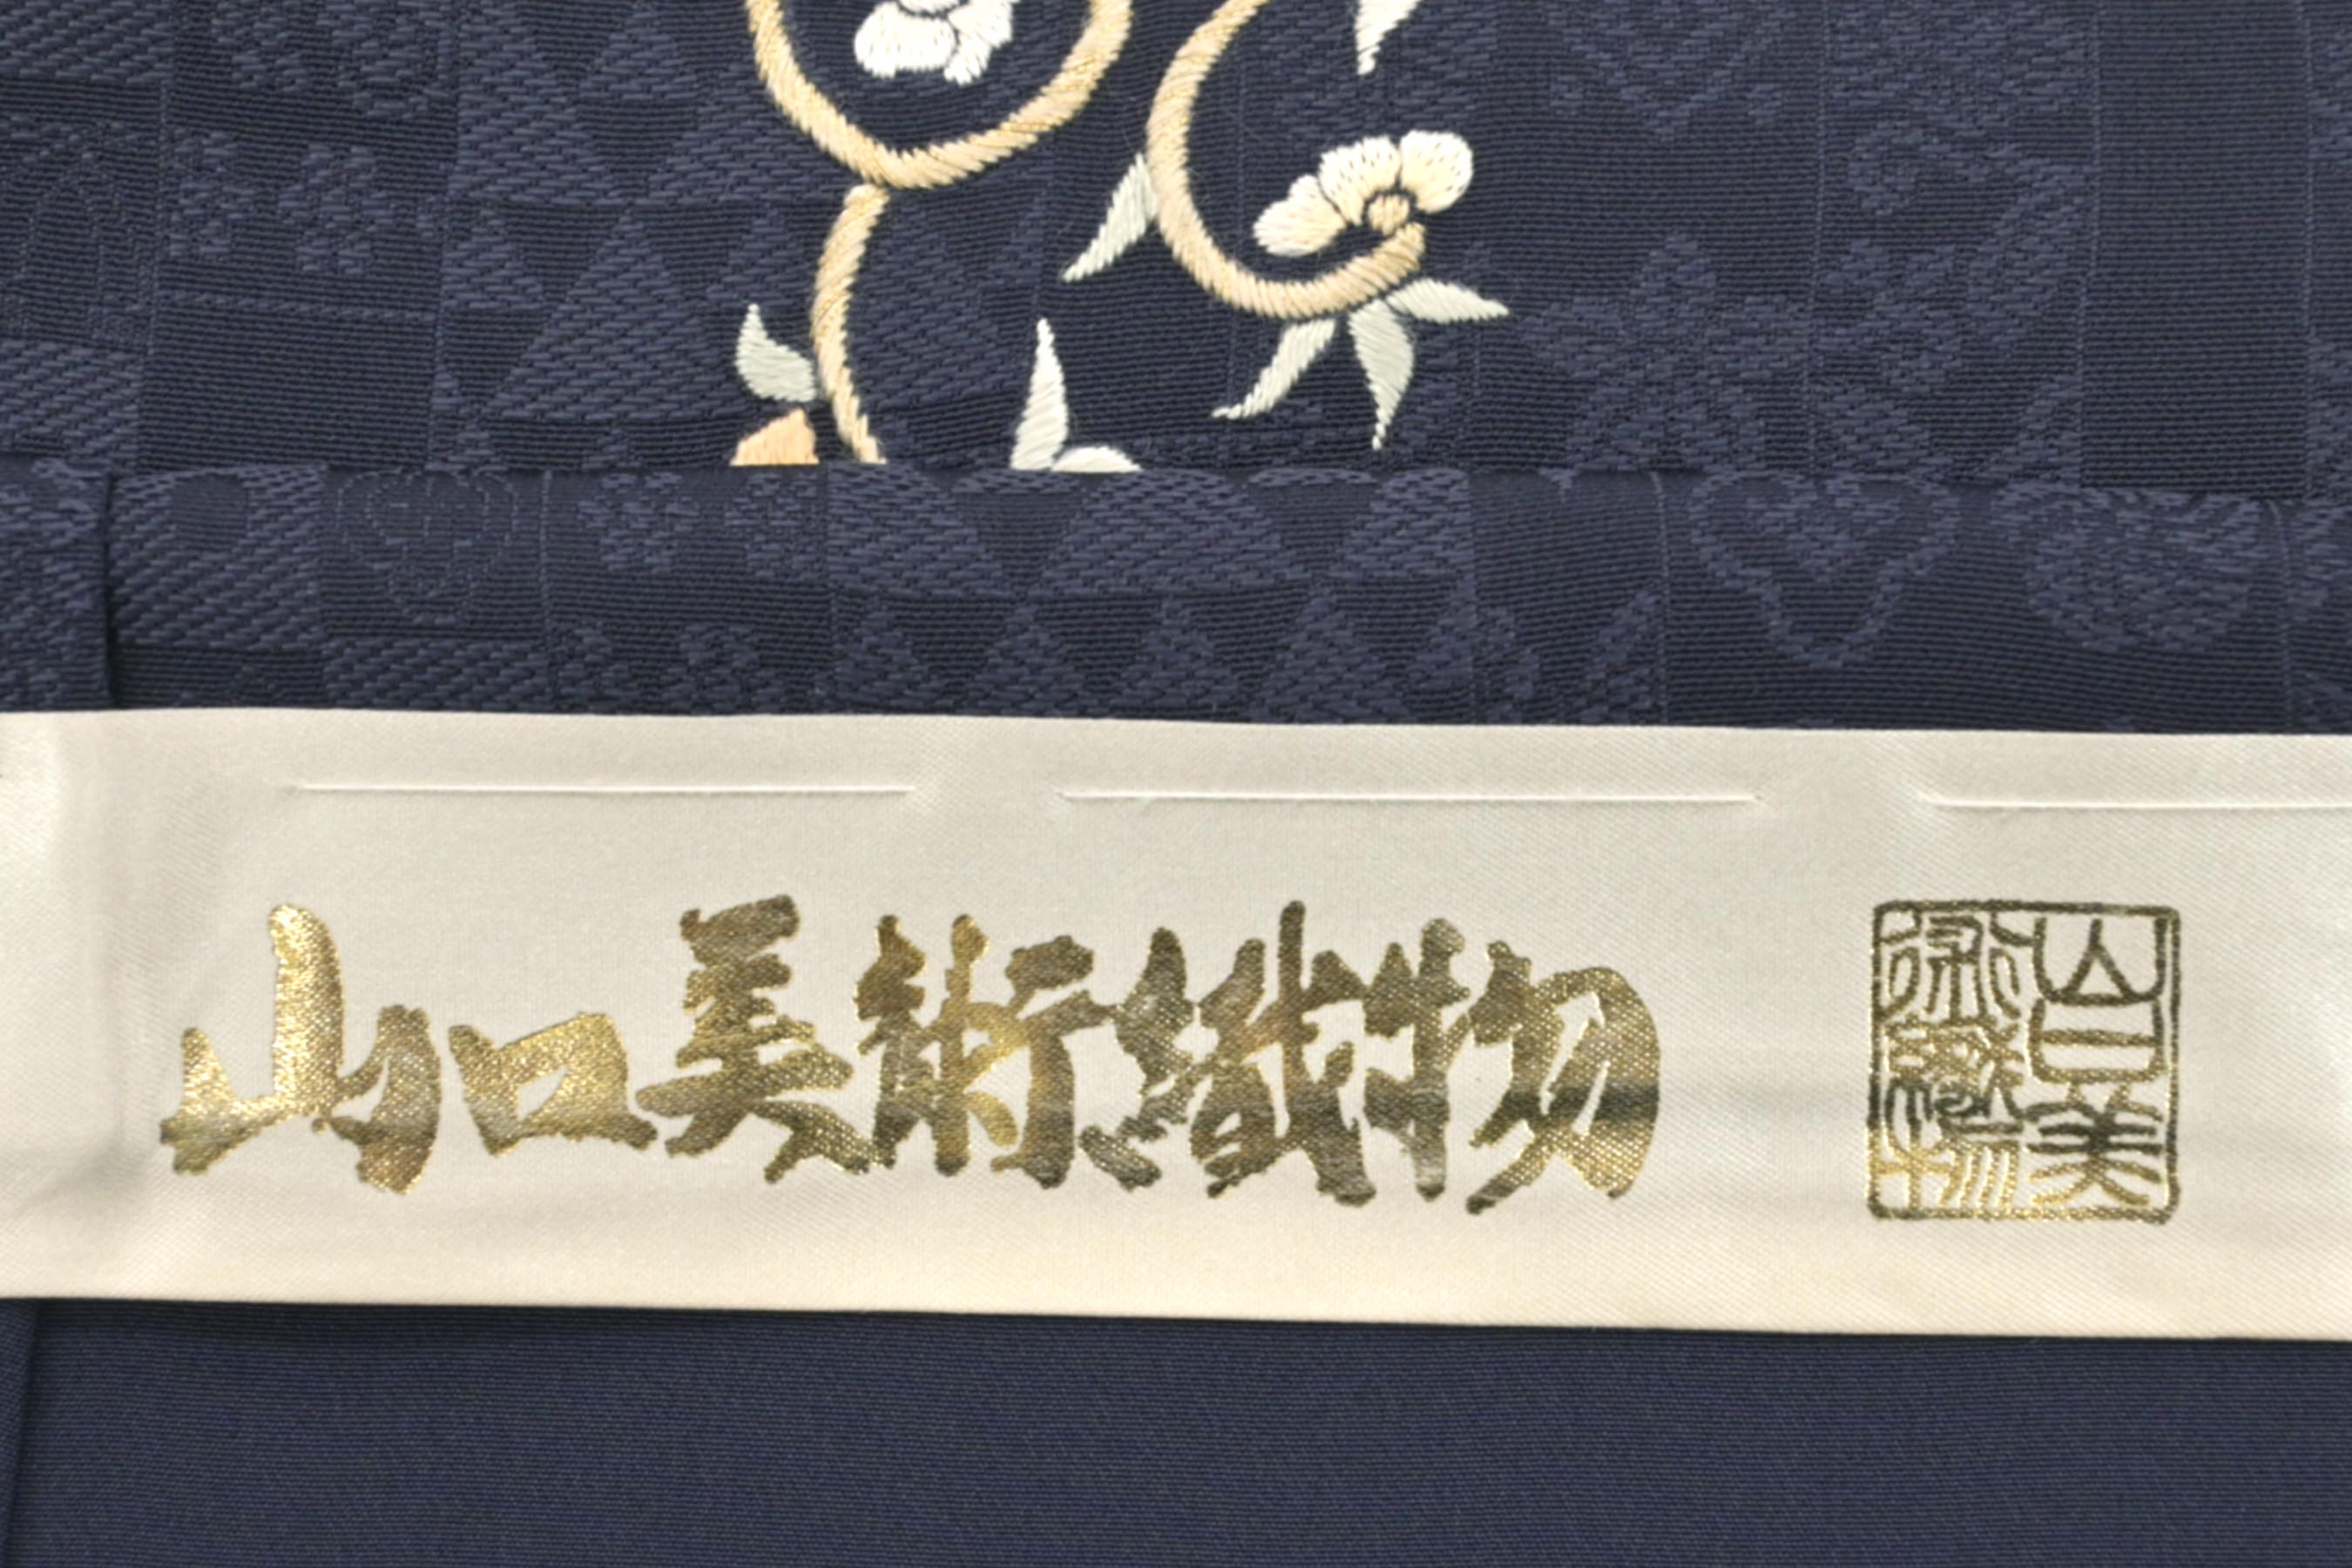 山口美術織物
山口美術織物